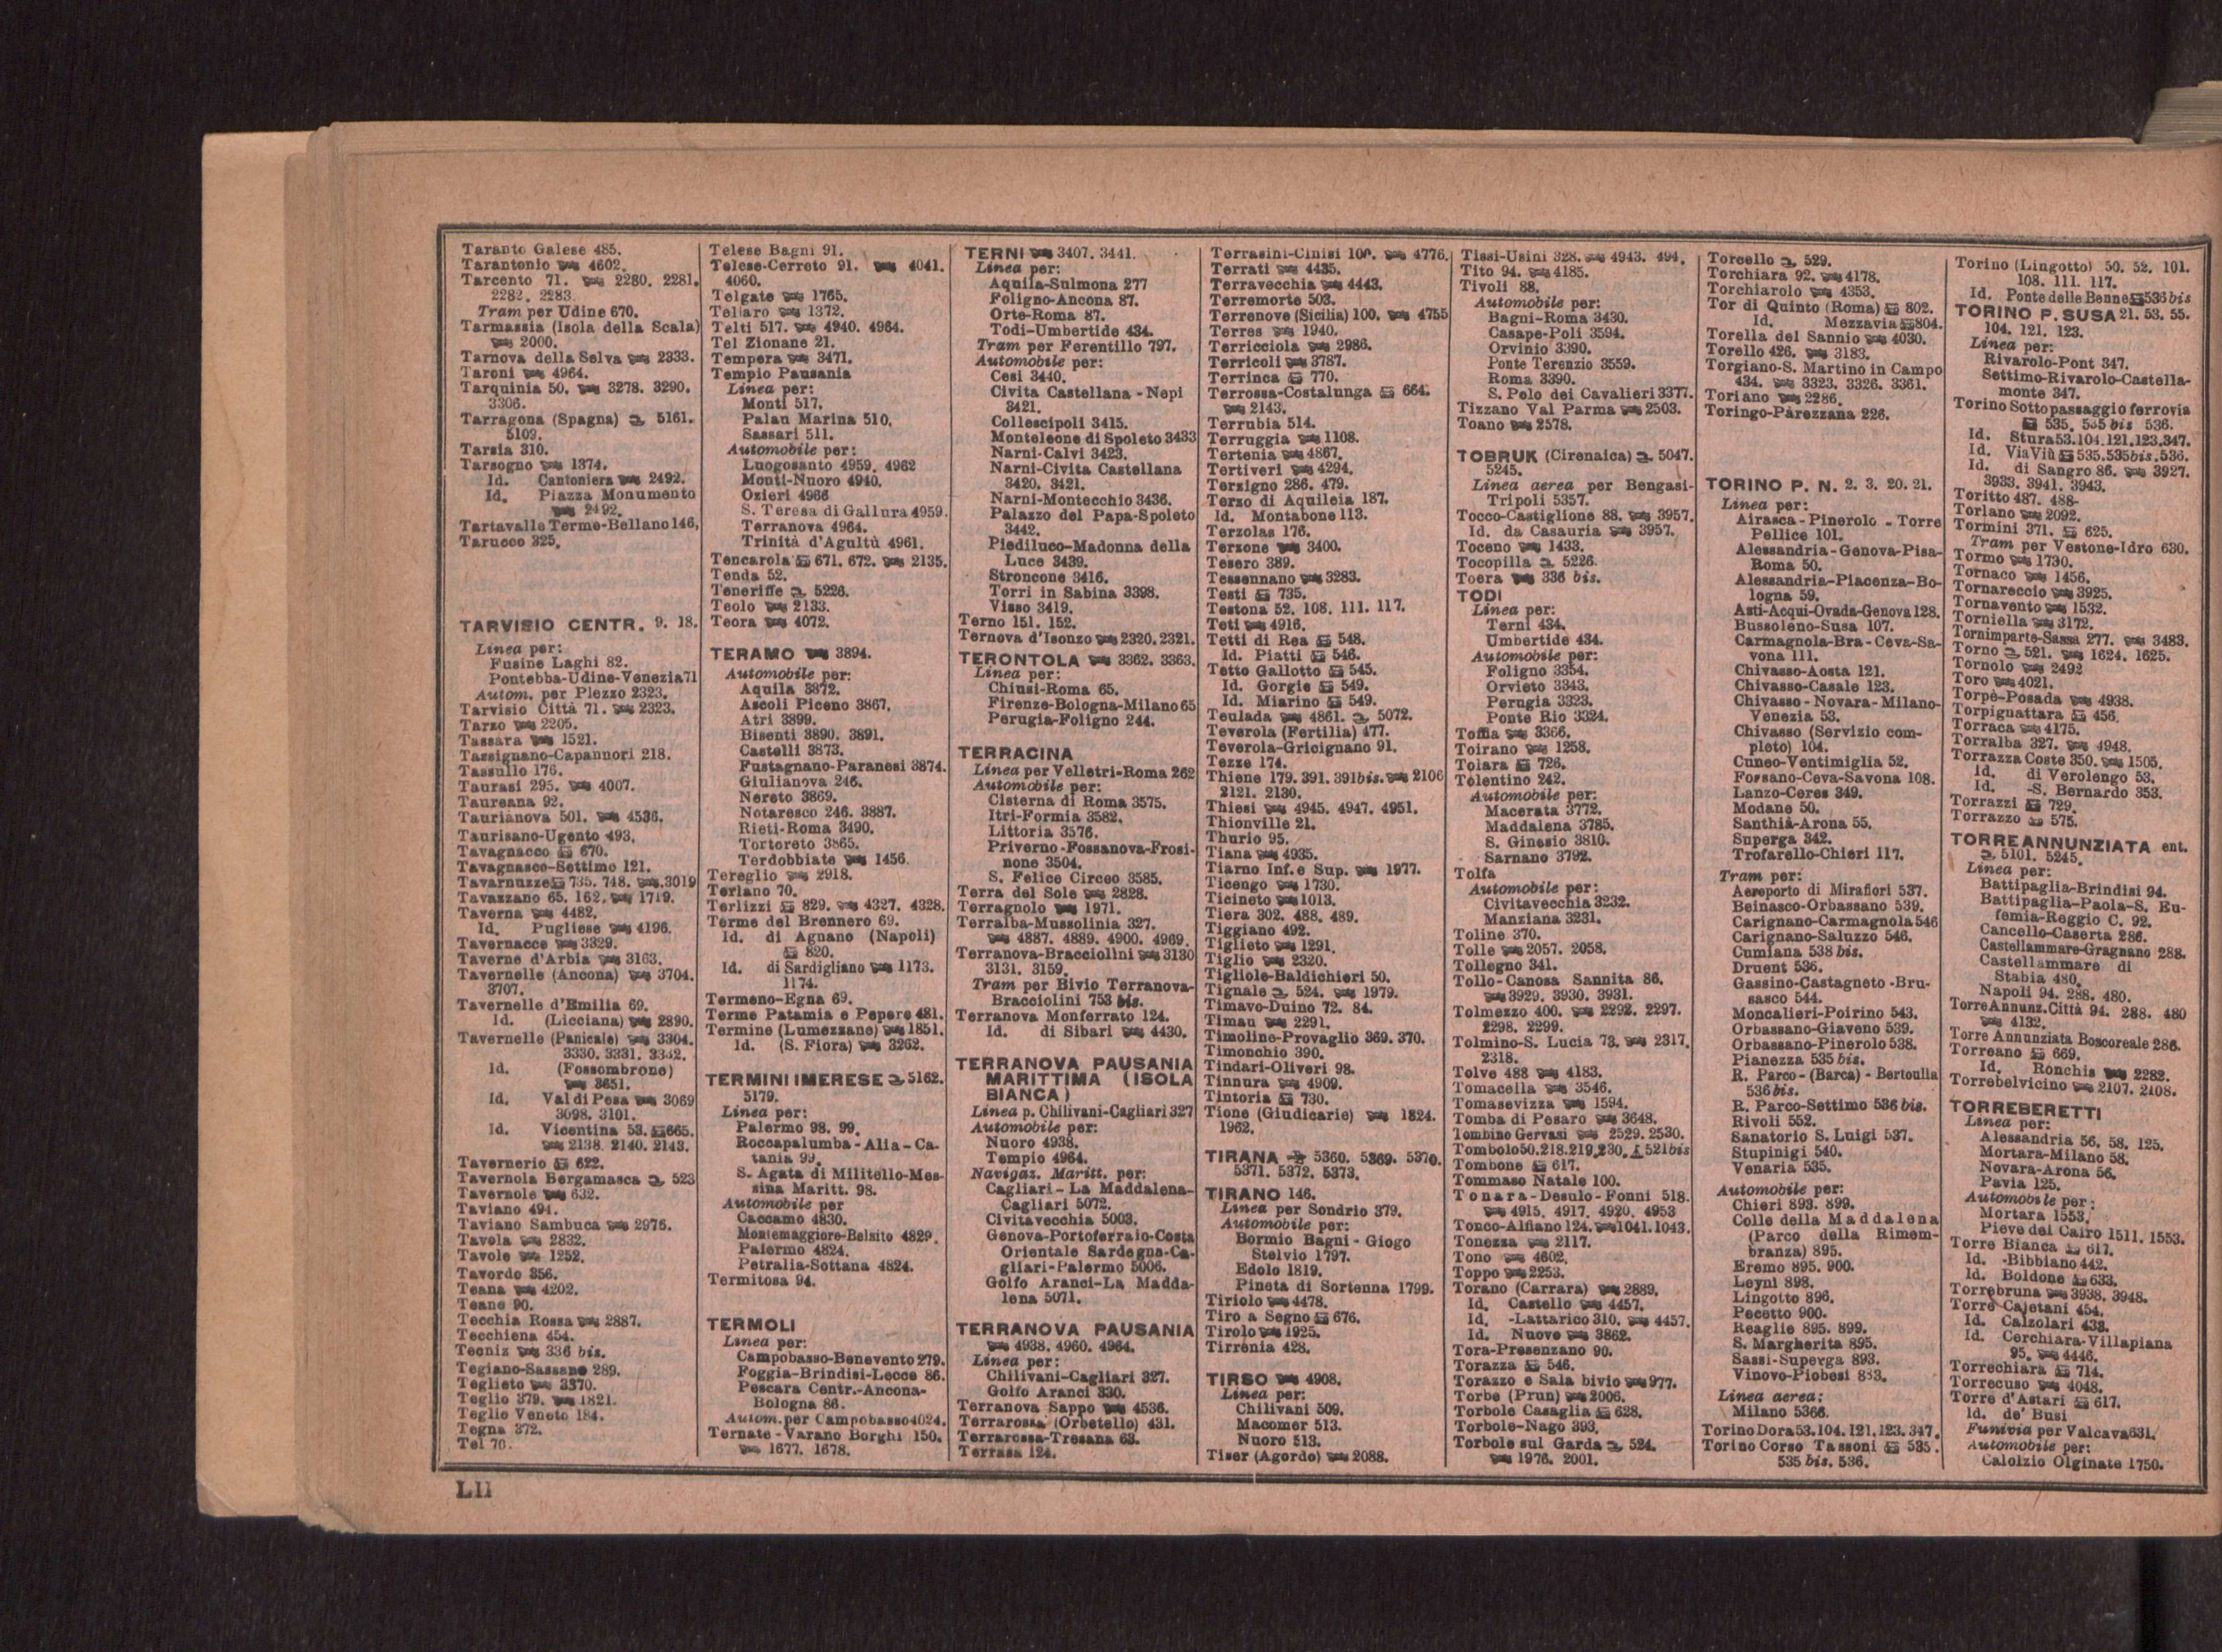 Taranto Galese 485.
Tarantonio 4602.
Tarcento 71. 2280. 2281.
2282. 2283.
Tram per Udine 670.
Tarmassia (Isola della Scala)
2000.
Tarnova della Selva 2333.
Taroni 4964.
Tarquinia 50. 3278. 3290.
3306.
Tarragona (Spagna) 5161.
5109.
Tarsia 310.
Tarsogno 1374.
Id. Cantoniera 2492.
Id. Piazza Monumento
2492.
Tartavalle Terme-Bellano 146.
Tarucco 325.
TARVISIO CENTR. 9. 18.
Linea per:
Fusine Laghi 82.
Pontebba-Udine-Venezia 71
Autom. per Plezzo 2323.
Tarvisio Città 71. 2323.
Tarzo 2205.
Tassara 1521.
Tassignano-Capannori 218.
Tassullo 176.
Taurasi 295. 4007.
Taureana 92.
Taurianova 501. 4536.
Taurisano-Ugento 493.
Tavagnacco 670.
Tavagnasco-Settimo 121.
Tavarnuzze 735. 748. 3019
Tavazzano 65. 162. 1719.
Taverna 4482.
Id. Pugliese 4196.
Tavernacce 3329.
Taverne d'Arbia 3163.
Tavernelle (Ancona) 3704.
3707.
Tavernelle d'Emilia 69.
Id. (Licciana) 2890.
Tavernelle (Panicale) 3304.
3330. 3331. 3332.
Id. (Fossombrone)
3651.
Id. Val di Pesa 3069
3098. 3101.
Id. Vicentina 53. 665.
2138. 2140. 2143.
Tavernerio 622.
Tavernola Bergamasca 523
Tavernole 632.
Taviano 494.
Taviano Sambuca 2976.
Tavola 2832.
Tavole 1252.
Tavordo 356.
Teana 4202.
Teano 90.
Tecchia Rossa 2887.
Tecchiena 454.
Tecniz 336 bis.
Tegiano-Sassano 289.
Teglieto 3370.
Teglio 379. 1821.
Teglio Veneto 184.
Tegna 372.
Tel 70.
Telese Bagni 91.
Telese-Cerreto 91. 4041.
4060.
Telgate 1765.
Tellaro 1372.
Telti 517. 4940. 4964.
Tel Zionane 21.
Tempera 3471.
Tempio Pausania
Linea per:
Monti 517.
Palau Marina 510.
Sassari 511.
Automobile per:
Luogosanto 4959. 4962
Monti-Nuoro 4940.
Ozieri 4966
S. Teresa di Gallura 4959.
Terranova 4964.
Trinità d'Agultù 4961.
Tencarola 671. 672. 2135.
Tenda 52.
Teneriffe 5226.
Teolo 2133.
Teora 4072.
TERAMO 3894.
Automobile per:
Aquila 3872.
Ascoli Piceno 3867.
Atri 3899.
Bisenti 3890. 3891.
Castelli 3873.
Fustagnano-Paranesi 3874.
Giulianova 246.
Nereto 3869.
Notaresco 246. 3887.
Rieti-Roma 3490.
Tortoreto 3865.
Terdobbiate 1456.
Tereglio 2918.
Terlano 70.
Terlizzi 829. 4327. 4328.
Terme del Brennero 69.
Id. di Agnano (Napoli)
820.
Id. di Sardigliano 1173.
1174.
Termeno-Egna 69.
Terme Patamia e Pepere 481.
Termine (Lumezzane) 1851.
Id. (S. Fiora) 3262.
TERMINI IMERESE 5162.
5179.
Linea per:
Palermo 98. 99.
Roccapalumba-Alia-Ca-
tania 99.
S. Agata di Militello-Mes-
sina Maritt. 98.
Automobile per
Caccamo 4830.
Montemaggiore-Belsito 4829.
Palermo 4824.
Petralia-Sottana 4824.
Termitosa 94.
TERMOLI
Linea per:
Campobasso-Benevento 279.
Foggia-Brindisi-Lecce 86.
Pescara Centr.-Ancona-
Bologna 86.
Autom. per Campobasso 4024.
Ternate-Varano Borghi 150.
1677. 1678.
TERNI 3407. 3441.
Linea per:
Aquila-Sulmona 277
Foligno-Ancona 87.
Orte-Roma 87.
Todi-Umbertide 434.
Tram per Ferentillo 797.
Automobile per:
Cesi 3440.
Civita Castellana-Nepi
3421.
Collescipoli 3415.
Monteleone di Spoleto 3433
Narni-Calvi 3423.
Narni-Civita Castellana
3420. 3421.
Narni-Montecchio 3436.
Palazzo del Papa-Spoleto
3442.
Piediluco-Madonna della
Luce 3439.
Stroncone 3416.
Torri in Sabina 3398.
Visso 3419.
Terno 151. 152.
Ternova d'Isonzo 2320. 2321.
TERONTOLA 3362. 3363.
Linea per:
Chiusi-Roma 65.
Firenze-Bologna-Milano 65
Perugia-Foligno 244.
TERRACINA
Linea per Velletri-Roma 262
Automobile per:
Cisterna di Roma 3575.
Itri-Formia 3582.
Littoria 3576.
Priverno-Fossanova-Frosi-
none 3504.
S. Felice Circeo 3585.
Terra del Sole 2828.
Terragnolo 1971.
Terralba-Mussolinia 327.
4887. 4889. 4900. 4969.
Terranova-Bracciolini 3130
3131. 3159.
Tram per Bivio Terranova-
Bracciolini 753 bis.
Terranova Monferrato 124.
Id. di Sibari 4430.
TERRANOVA PAUSANIA
MARITTIMA (ISOLA
BIANCA)
Linea p. Chilivani-Cagliari 327
Automobile per:
Nuoro 4938.
Tempio 4964.
Navigaz. Maritt. per:
Cagliari-La Maddalena-
Cagliari 5072.
Civitavecchia 5003.
Genova-Portoferraio-Costa
Orientale Sardegna-Ca-
gliari-Palermo 5006.
Golfo Aranci-La Madda-
lena 5071.
TERRANOVA PAUSANIA
4938. 4960. 4964.
Linea per:
Chilivani-Cagliari 327.
Golfo Aranci 330.
Terranova Sappo 4536.
Terrarossa (Orbetello) 431.
Terrarossa-Tresana 63.
Terrasa 124.
Terrasini-Cinisi 100. 4776.
Terrati 4435.
Terravecchia 4443.
Terremorte 503.
Terrenove (Sicilia) 100. 4755
Terres 1940.
Terricciola 2986.
Terricoli 3787.
Terrinca 770.
Terrossa-Costalunga 664.
2143.
Terrubia 514.
Terruggia 1108.
Tertenia 4867.
Tertiveri 4294.
Terzigno 286. 479.
Terzo di Aquileia 187.
Id. Montabone 113.
Terzolas 176.
Terzone 3400.
Tesero 389.
Tessennano 3283.
Testi 735.
Testona 52. 108. 111. 117.
Teti 4916.
Tetti di Rea 548.
Id. Piatti 546.
Tetto Gallotto 545.
Id. Gorgie 549.
Id. Miarino 549.
Teulada 4861. 5072.
Teverola (Fertilia) 477.
Teverola-Gricignano 91.
Tezze 174.
Thiene 179. 391. 391bis. 2106
2121. 2130.
Thiesi 4945. 4947. 4951.
Thionville 21.
Thurio 95.
Tiana 4935.
Tiarno Inf. e Sup. 1977.
Ticengo 1730.
Ticineto 1013.
Tiera 302. 488. 489.
Tiggiano 492.
Tiglieto 1291.
Tiglio 2320.
Tigliole-Baldichieri 50.
Tignale 524. 1979.
Timavo-Duino 72. 84.
Timau 2291.
Timoline-Provaglio 369. 370.
Timonchio 390.
Tindari-Oliveri 98.
Tinnura 4909.
Tintoria 730.
Tione (Giudicarie) 1824.
1962.
TIRANA 5360. 5369. 5370.
5371. 5372. 5373.
TIRANO 146.
Linea per Sondrio 379.
Automobile per:
Bormio Bagni-Giogo
Stelvio 1797.
Edolo 1819.
Pineta di Sortenna 1799.
Tiriolo 4478.
Tiro a Segno 676.
Tirolo 1925.
Tirrenia 428.
TIRSO 4908.
Linea per:
Chilivani 509.
Macomer 513.
Nuoro 513.
Tiser (Agordo) 2088.
Tissi-Usini 328. 4943. 494.
Tito 94. 4185.
Tivoli 88.
Automobile per:
Bagni-Roma 3430.
Casape-Poli 3594.
Orvinio 3390.
Ponte Terenzio 3559.
Roma 3390.
S. Polo dei Cavalieri 3377.
Tizzano Val Parma 2503.
Toano 2578.
TOBRUK (Cirenaica) 5047.
5245.
Linea aerea per Bengasi-
Tripoli 5357.
Tocco-Castiglione 88. 3957.
Id. da Casauria 3957.
Toceno 1433.
Tocopilla 5226.
Toera 336 bis.
TODI
Linea per:
Terni 434.
Umbertide 434.
Automobile per:
Foligno 3354.
Orvieto 3343.
Perugia 3323.
Ponte Rio 3324.
Toffia 3366.
Toirano 1258.
Tolara 726.
Tolentino 242.
Automobile per:
Macerata 3772.
Maddalena 3785.
S. Ginesio 3810.
Sarnano 3792.
Tolfa
Automobile per:
Civitavecchia 3232.
Manziana 3231.
Toline 370.
Tolle 2057. 2058.
Tollegno 341.
Tollo-Canosa Sannita 86.
3929. 3930. 3931.
Tolmezzo 400. 2292. 2297.
2298. 2299.
Tolmino-S. Lucia 73. 2317.
2318.
Tolve 488 4183.
Tomacella 3546.
Tomasevizza 1594.
Tomba di Pesaro 3648.
Tombino Gervasi 2529. 2530.
Tombolo 50. 218. 219. 230. 521bis
Tombone 617.
Tommaso Natale 100.
Tonara-Desulo-Fonni 518.
4915. 4917. 4920. 4953
Tonco-Alfiano 124. 1041. 1043.
Tonezza 2117.
Tono 4602.
Toppo 2253.
Torano (Carrara) 2889.
Id. Castello 4457.
Id. -Lattarico 310. 4457.
Id. Nuovo 3862.
Tora-Presenzano 90.
Torazza 546.
Torazzo e Sala bivio 977.
Torbe (Prun) 2006.
Torbole Casaglia 628.
Torbole-Nago 393.
Torbole sul Garda 524.
1976. 2001.
Torcello 529.
Torchiara 92. 4178.
Torchiarolo 4353.
Tor di Quinto (Roma) 802.
Id. Mezzavia 804.
Torella del Sannio 4030.
Torello 426. 3183.
Torgiano-S. Martino in Campo
434. 3323. 3326. 3361.
Toriano 2286.
Toringo-Parezzana 226.
TORINO P. N. 2. 3. 20. 21.
Linea per:
Airasca-Pinerolo-Torre
Pellice 101.
Alessandria-Genova-Pisa-
Roma 50.
Alessandria-Piacenza-Bo-
logna 59.
Asti-Acqui-Ovada-Genova 128.
Bussoleno-Susa 107.
Carmagnola-Bra-Ceva-Sa-
vona 111.
Chivasso-Aosta 121.
Chivasso-Casale 123.
Chivasso-Novara-Milano-
Venezia 53.
Chivasso (Servizio com-
pleto) 104.
Cuneo-Ventimiglia 52.
Fossano-Ceva-Savona 108.
Lanzo-Ceres 349.
Modane 50.
Santhià-Arona 55.
Superga 342.
Trofarello-Chieri 117.
Tram per:
Aeroporto di Mirafiori 537.
Beinasco-Orbassano 539.
Carignano-Carmagnola 546
Carignano-Saluzzo 546.
Cumiana 538 bis.
Druent 536.
Gassino-Castagneto-Bru-
sasco 544.
Moncalieri-Poirino 543.
Orbassano-Giaveno 539.
Orbassano-Pinerolo 538.
Pianezza 535 bis.
R. Parco-(Barca)-Bertoulla
536 bis.
R. Parco-Settimo 536 bis.
Rivoli 552.
Sanatorio S. Luigi 537.
Stupinigi 540.
Venaria 535.
Automobile per:
Chieri 893. 899.
Colle della Maddalena
(Parco della Rimem-
branza) 895.
Eremo 895. 900.
Leynì 898.
Lingotto 896.
Pecetto 900.
Reaglie 895. 899.
S. Margherita 895.
Sassi-Superga 893.
Vinovo-Piobesi 883.
Linea aerea:
Milano 5366.
Torino Dora 53. 104. 121. 123. 347.
Torino Corso Tassoni 535.
535 bis. 536.
Torino (Lingotto) 50. 52. 101.
108. 111. 117.
Id. Ponte delle Benne 536 bis
TORINO P. SUSA 21. 53. 55.
104. 121. 123.
Linea per:
Rivarolo-Pont 347.
Settimo-Rivarolo-Castella-
monte 347.
Torino Sottopassaggio ferrovia
535. 535 bis 536.
Id. Stura 53. 104. 121. 123. 347.
Id. Via Viù 535. 535bis. 536.
Id. di Sangro 86. 3927.
3933. 3941. 3943.
Toritto 487. 488.
Torlano 2092.
Tormini 371. 625.
Tram per Vestone-Idro 630.
Tormo 1730.
Tornaco 1456.
Tornareccio 3925.
Tornavento 1532.
Torniella 3172.
Tornimparte-Sassa 277. 3483.
Torno 521. 1624. 1625.
Tornolo 2492
Toro 4021.
Torpè-Posada 4938.
Torpignattara 456.
Torraca 4175.
Torralba 327. 4948.
Torrazza Coste 350. 1505.
Id. di Verolengo 53.
Id. -S. Bernardo 353.
Torrazzi 729.
Torrazzo 575.
TORRE ANNUNZIATA ent.
5101. 5245.
Linea per:
Battipaglia-Brindisi 94.
Battipaglia-Paola-S. Eu-
femia-Reggio C. 92.
Cancello-Caserta 286.
Castellammare-Gragnano 288.
Castellammare di
Stabia 480.
Napoli 94. 288. 480.
Torre Annunz. Città 94. 288. 480
4132.
Torre Annunziata Boscoreale 286.
Torreano 669.
Id. Ronchis 2282.
Torrebelvicino 2107. 2108.
TORREBERETTI
Linea per:
Alessandria 56. 58. 125.
Mortara-Milano 58.
Novara-Arona 56.
Pavia 125.
Automobile per:
Mortara 1553.
Pieve del Cairo 1511. 1553.
Torre Bianca 617.
Id. -Bibbiano 442.
Id. Boldone 633.
Torrebruna 3938. 3948.
Torre Cajetani 454.
Id. Calzolari 433.
Id. Cerchiara-Villapiana
95. 4446.
Torrechiara 714.
Torrecuso 4048.
Torre d'Astari 617.
Id. de' Busi
Funivia per Valcava 631.
Automobile per:
Calolzio Olginate 1750.
LII